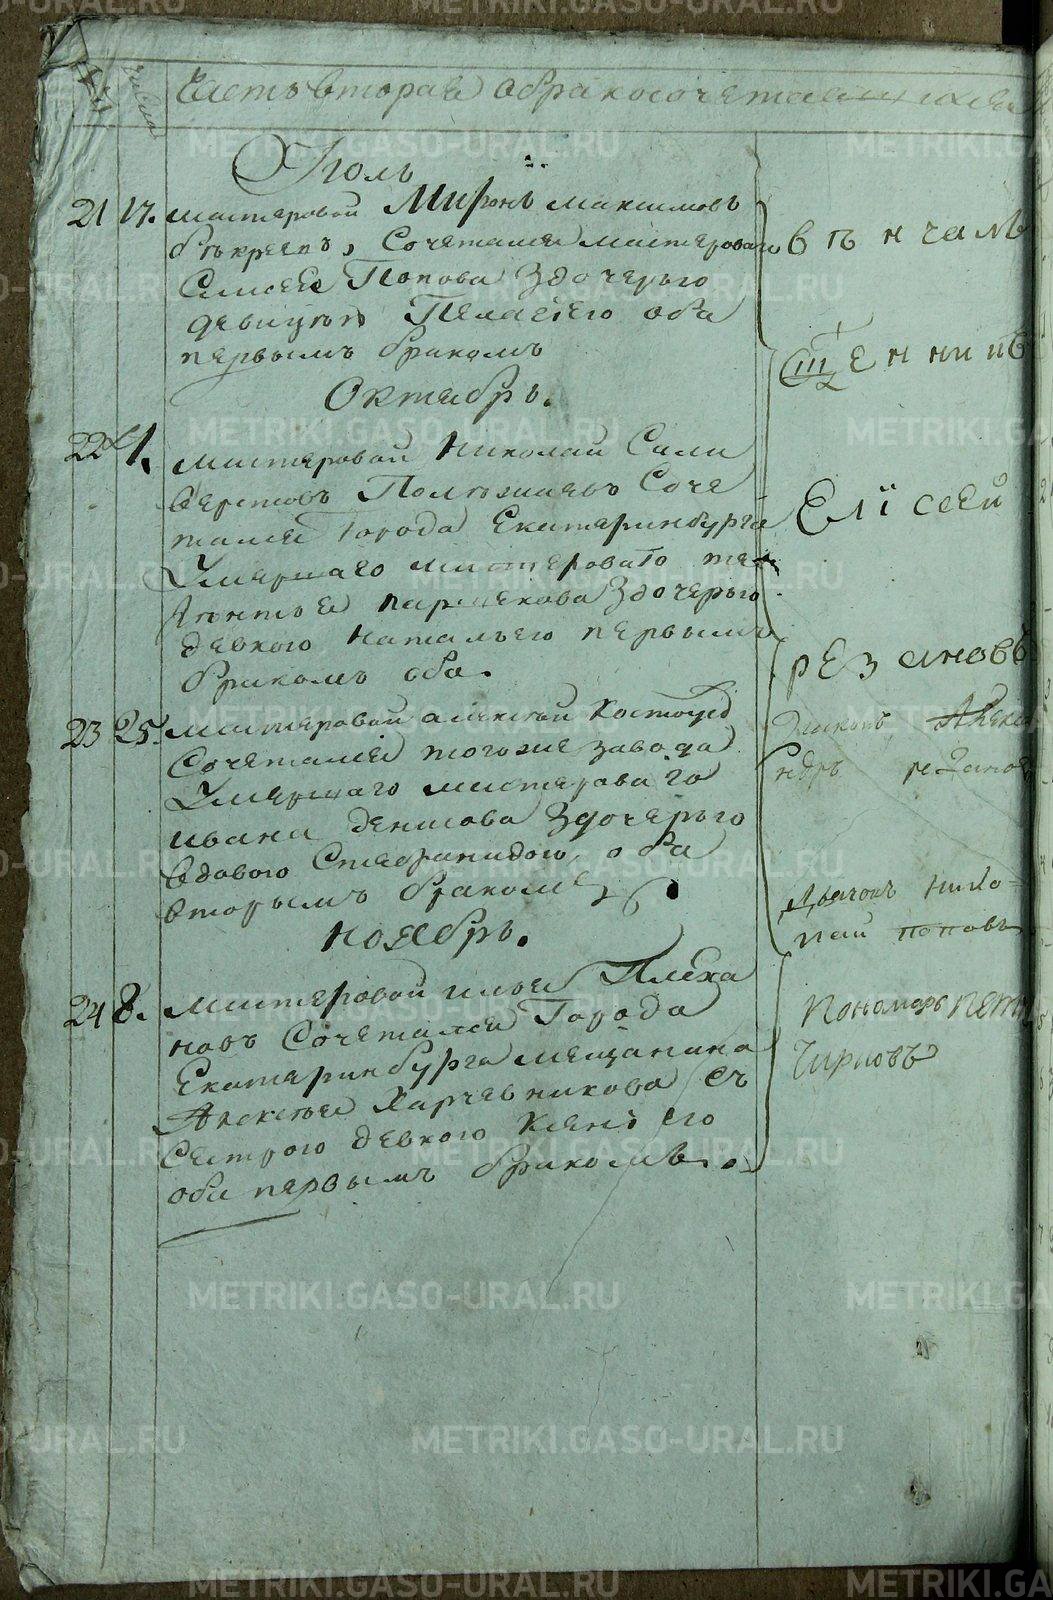 Часть вторая о бракосочетавшихся
числа
Июль
21 17. мастеровой Миронъ Максимовъ
Сочетался мастероваго
Елисея Попова здочерью
девицею Пелагиею оба
первымъ бракомъ
Октябрь.
22 1. мастеровой Николай Сели
верстовъ Соче
тался Города Екатеринбурга
Умершаго мастероваго
здочерью
девкою Наталиею первымъ
бракомъ оба.
23 25. мастеровой алексей
Сочетался тогоже завода
Умершаго мастероваго
ивана денисова здочерью
вдовою Стефанидою оба
вторымъ бракомъ
ноябрь.
24 8. мастеровой илья Плеха
новъ Сочетался Города
Екатеринбурга мещанина
Алексея Харчевникова съ
сестрою девкою Ксениею
оба первымъ бракомъ.
венчалъ
Священникъ
Елисей
резановъ
Диаконъ Алекса
ндръ резановъ
Дьячокъ Нико-
лай поповъ
Пономарь петръ
METRIKI.GASO-URAL.RU